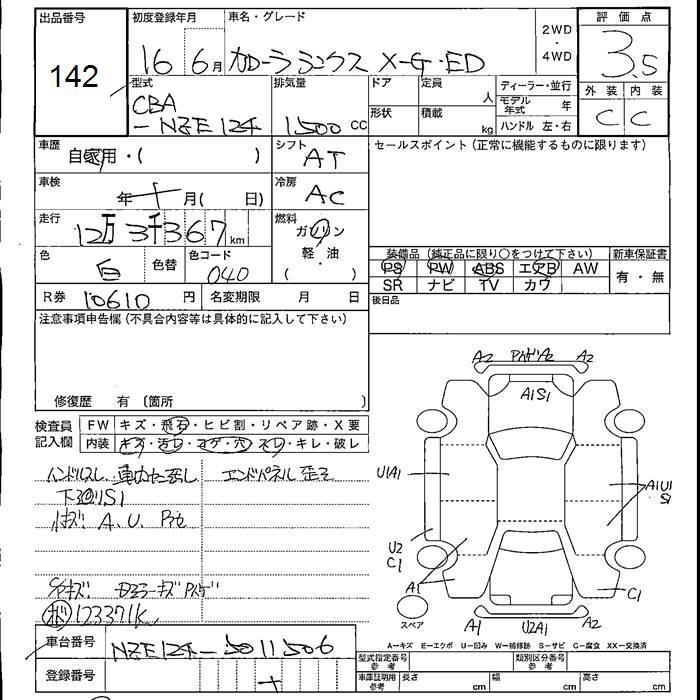 出品番号 初度登録年月 車名・グレード 2WD ・ 4WD 評価点
142 16年 6月 カローラランクス X-G・ED 3.5
型式 排気量 ドア 定員 人 ディーラー・並行 外装 内装
CBA モデル年式 年 C C
-NZE124 1500 cc 形状 積載 kg ハンドル 左・右
車歴 自家用・( ) シフト AT セールスポイント (正常に機能するものに限ります)
車検 年 月( 日) 冷房 AC
走行 12万3千367 km 燃料 ガソリン
軽・油
( )
色 白 色替 色コード 040 装備品 (純正品に限り○をつけて下さい) 新車保証書
PS PW ABS エアB AW 有・無
SR ナビ TV カワ
R券 10610 円 名変期限 月 日 後日品
注意事項申告欄 (不具合内容等は具体的に記入して下さい)
修復歴 有 〔箇所 〕
検査員 FW キズ・飛石・ヒビ割・リペア跡・X要
記入欄 内装 キズ・汚レ・コゲ・穴・スレ・キレ・破レ
ハンドルスレ エンドパネル 歪み
下廻りS1
A、U、
123371K
A2 A2 A2
A1S1
U1A1
A1U1
S1
U2
C1
A1
C1
スペア
A1 U2A1 A2
A=キズ E=エクボ U=凹み W=補修跡 S=サビ C=腐食 XX=交換済
車台番号 NZE124-5011506 型式指定番号 参考 類別区分番号 参考
登録番号 車庫証明用 参考 長さ cm 幅 cm 高さ cm